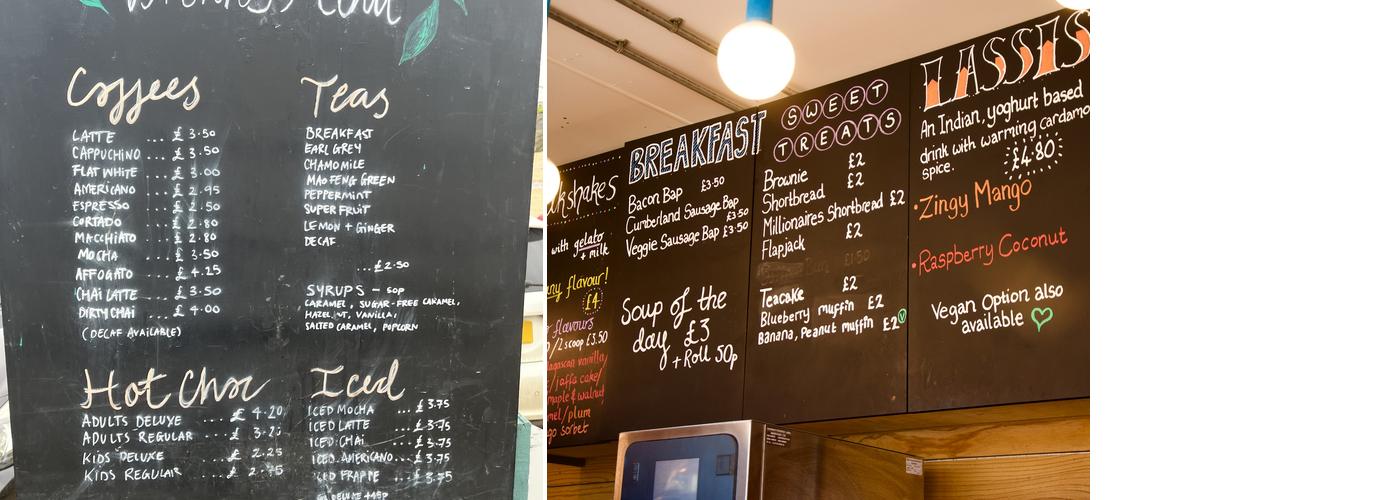 Coffees
LATTE ... £ 3.50
CAPPUCHINO ... £ 3.50
FLAT WHITE ... £ 3.00
AMERICANO ... £ 2.95
ESPRESSO ... £ 2.50
CORTADO ... £ 2.80
MACCHIATO ... £ 2.80
MOCHA ... £ 3.50
AFFOGATO ... £ 4.25
CHAI LATTE ... £ 3.50
DIRTY CHAI ... £ 4.00
(DECAF AVAILABLE)
Teas
BREAKFAST
EARL GREY
CHAMOMILE
MAO FENG GREEN
PEPPERMINT
SUPER FRUIT
LEMON + GINGER
DECAF
...£2.50
SYRUPS - 50p
CARAMEL, SUGAR-FREE CARAMEL,
HAZELNUT, VANILLA,
SALTED CARAMEL, POPCORN
Hot Choc
ADULTS DELUXE ... £ 4.20
ADULTS REGULAR ... £
KIDS DELUXE ... £ 2.25
KIDS REGULAR ... £
Iced
ICED MOCHA ... £3.75
ICED LATTE ... £3.75
ICED CHAI ... £3.75
ICED AMERICANO... £3.75
ICED FRAPPE ... £3.75
DELUXE +45p
lkshakes
with gelato
+ milk
any flavour!
£4
flavours
/2 scoop £3.50
agascan vanilla/
/jaffa cake/
maple & walnut
mel/plum
go sorbet
BREAKFAST
Bacon Bap £3.50
Cumberland Sausage Bap
Veggie Sausage Bap £3.50 £3.50
Soup of the
day £3
+ Roll 50p
SWEET
TREATS
Brownie £2
Shortbread £2
Millionaires Shortbread £2
Flapjack £2
Teacake £2
Blueberry muffin £2
Banana, Peanut muffin £2 V
LASSIS
An Indian, yoghurt based
drink with warming cardamo
spice. £4.80
• Zingy Mango
• Raspberry Coconut
Vegan Option also
available